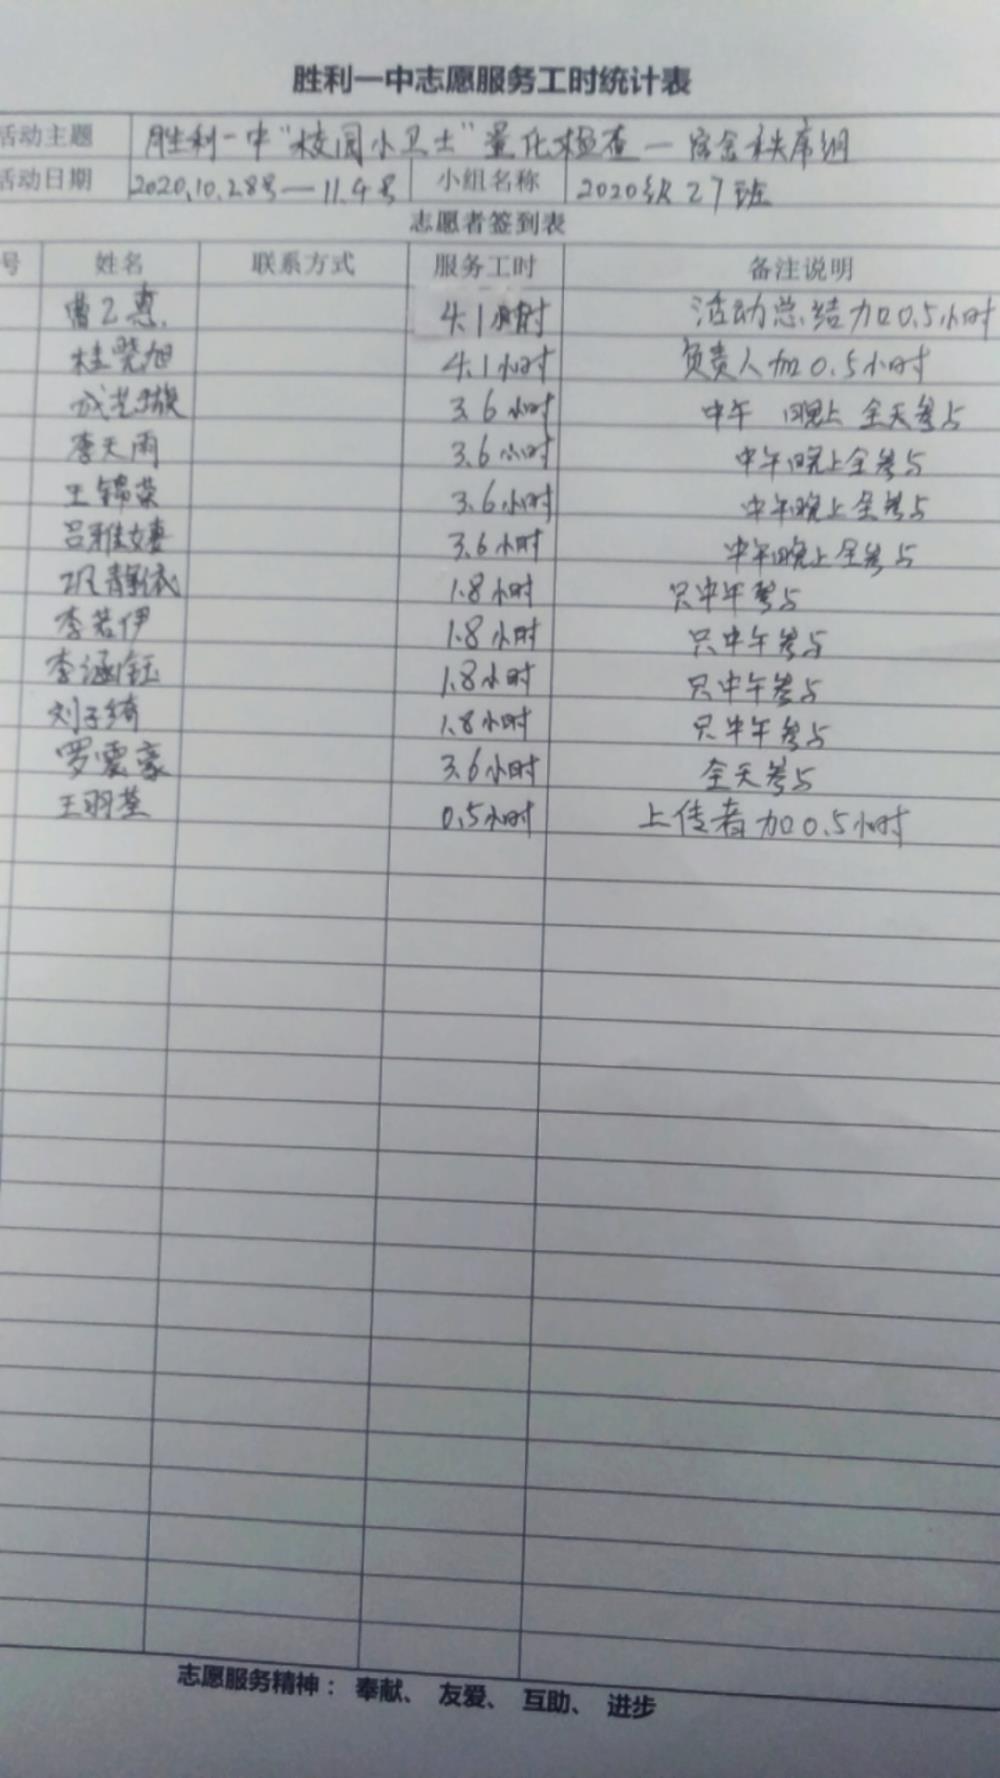 胜利一中志愿服务工时统计表
活动主题 胜利一中“校园小卫士”量化检查一宿舍秩序组
活动日期 2020.10.28号—11.4号 小组名称 2020级27班
志愿者签到表
号 姓名 联系方式 服务工时 备注说明
曹乙惠 4.1小时 活动总结加0.5小时
桂晓旭 4.1小时 负责人加0.5小时
3.6小时 中午 晚上 全天参与
李天雨 3.6小时 中午晚上全参与
王锦荣 3.6小时 中午晚上全参与
吕雅 3.6小时 中午晚上全参与
巩静依 1.8小时 只中午参与
李若伊 1.8小时 只中午参与
李涵钰 1.8小时 只中午参与
刘子绮 1.8小时 只中午参与
罗震豪 3.6小时 全天参与
王羽荃 0.5小时 上传者加0.5小时
志愿服务精神： 奉献、 友爱、 互助、 进步